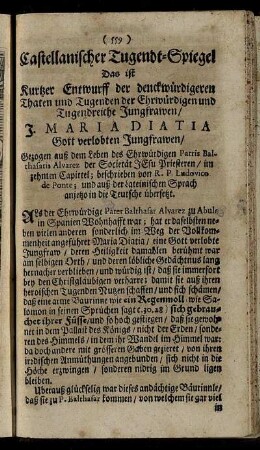 ( 559 )
Castellanischer Tugendt-Spiegel
Das ist
Kurtzer Entwurff der denckwürdigeren
Thaten und Tugenden der Ehrwürdigen und
Tugendreiche Jungfrawen /
J. MARIA DIATIA
Gott verlobten Jungfrawen /
Gezogen auß dem Leben deß Ehrwürdigen Patris Bal-
thasaris Alvarez der Societät JEsu Priesteren / im
zehnten Capittel; beschrieben von R. P. Ludovico
de Ponte; und auß der lateinischen Sprach
anjetzo in die Teutsche übersetzt.
ALs der Ehrwürdige Pater Balthasar Alvarez zu Abula
in Spanien Wohnhafft war; hat er daselbsten ne-
ben vielen anderen sonderlich im Weg der Voll-
kommenheit angeführet Maria Diatia / eine Gott verlobte
Jungfraw / deren Heiligkeit damahlen berühmt war
am selbigen Orth / und deren löbliche Gedächtnus lang
hernacher verblieben / und würdig ist / daß sie immerfort
bey den Christgläubigen verharre; damit sie auß ihren
heroischen Tugenden Nutzen schaffen / und sich schämen /
daß eine arme Baurinne wie ein Regenmoll / wie Sa-
lomon in seinen Sprüchen sagt c. 30. 28 / sich gebrau-
chet ihrer Füsse / und so hoch gestiegen / daß sie gewohnt
in dem Pallast deß Königs / nicht der Erden / sonde-
ren deß Himmels / in dem ihr Wandel im Himmel war:
da dochandere mit grösseren Gaben gezieret / von ihren
irrdischen Anmüthungen angebunden / sich nicht in die
Höhe erzwingen / sonderen nidrig im Grund ligen
bleiben.
Uberauß glückselig war dieses andächtige Bäurinnle /
daß sie zu P. Balthasar kommen / von welchem sie gar viel
in